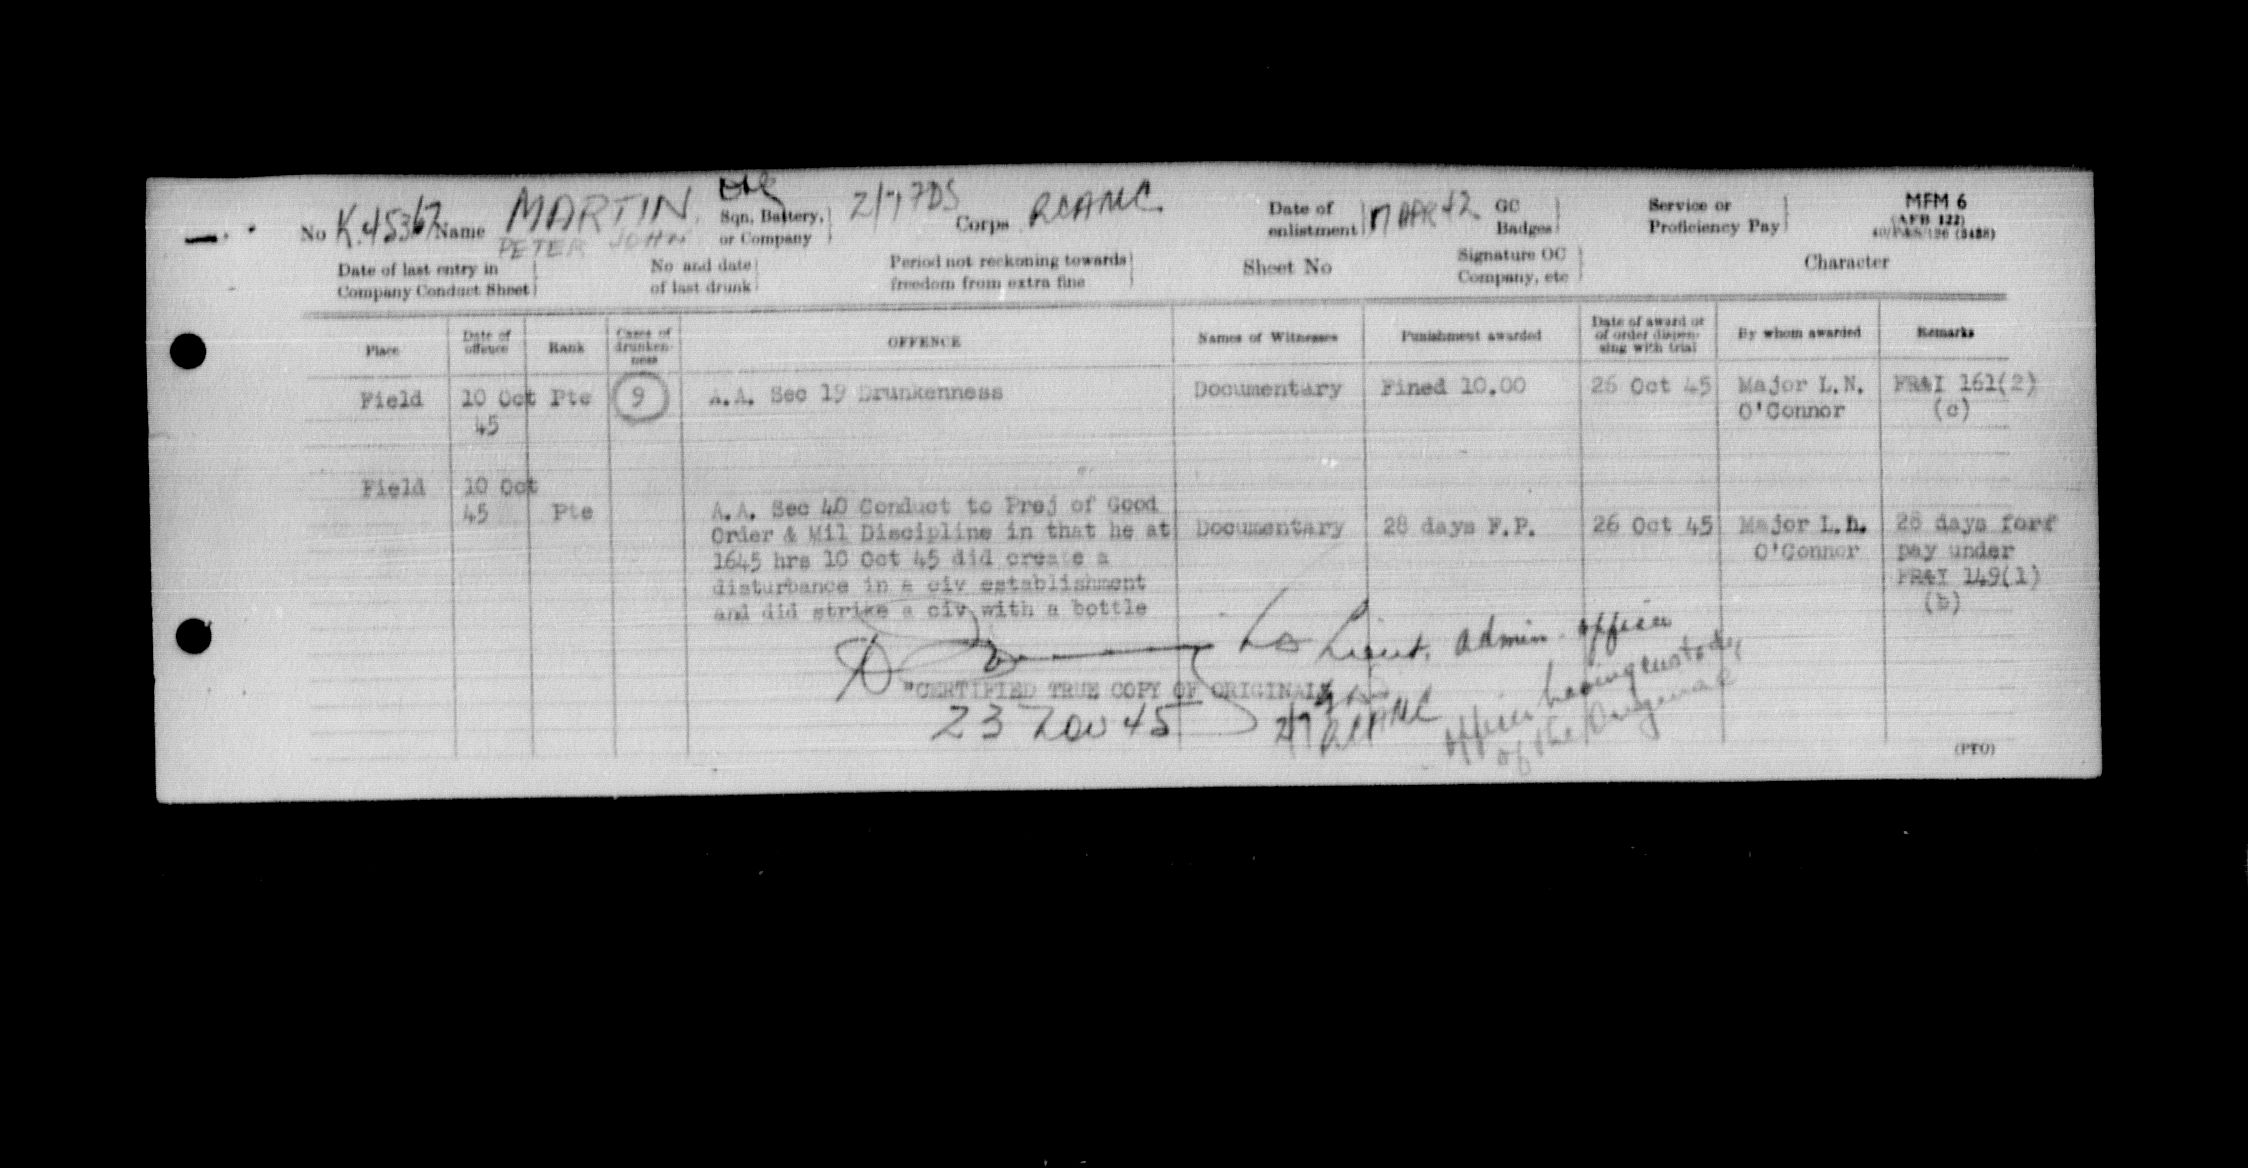 No K.45367 Name MARTIN, Sqn, Battery, or Company 2/7 FDS Corps RCAMC Date of enlistment 17 APR 42 GC Badges Service or Proficiency Pay MFM 6
(AFB 122)
PETER JOHN
Date of last entry in Company Conduct Sheet No and date of last drunk Period not reckoning towards freedom from extra fine Sheet No Signature OC Company, etc Character
Place Date of offence Rank Cases of drunkenness OFFENCE Names of Witnesses Punishment awarded Date of award or of order dispensing with trial By whom awarded Remarks
Field 10 Oct Pte 9 A.A. Sec 19 Drunkenness Documentary Fined 10.00 26 Oct 45 Major L.N. FR&I 161(2)
45 O'Connor (c)
Field 10 Oct
45 Pte A.A. Sec 40 Conduct to Prej of Good
Order & Mil Discipline in that he at Documentary 28 days F.P. 26 Oct 45 Major L.N. 28 days forf
1645 hrs 10 Oct 45 did create a O'Connor pay under
disturbance in a civ establishment FR&I 149(1)
and did strike a civ with a bottle (b)
Lieut. Admin. officer
"CERTIFIED TRUE COPY OF ORIGINAL"
officer having custody
of the Original
23 Nov 45 RCAMC
(PTO)